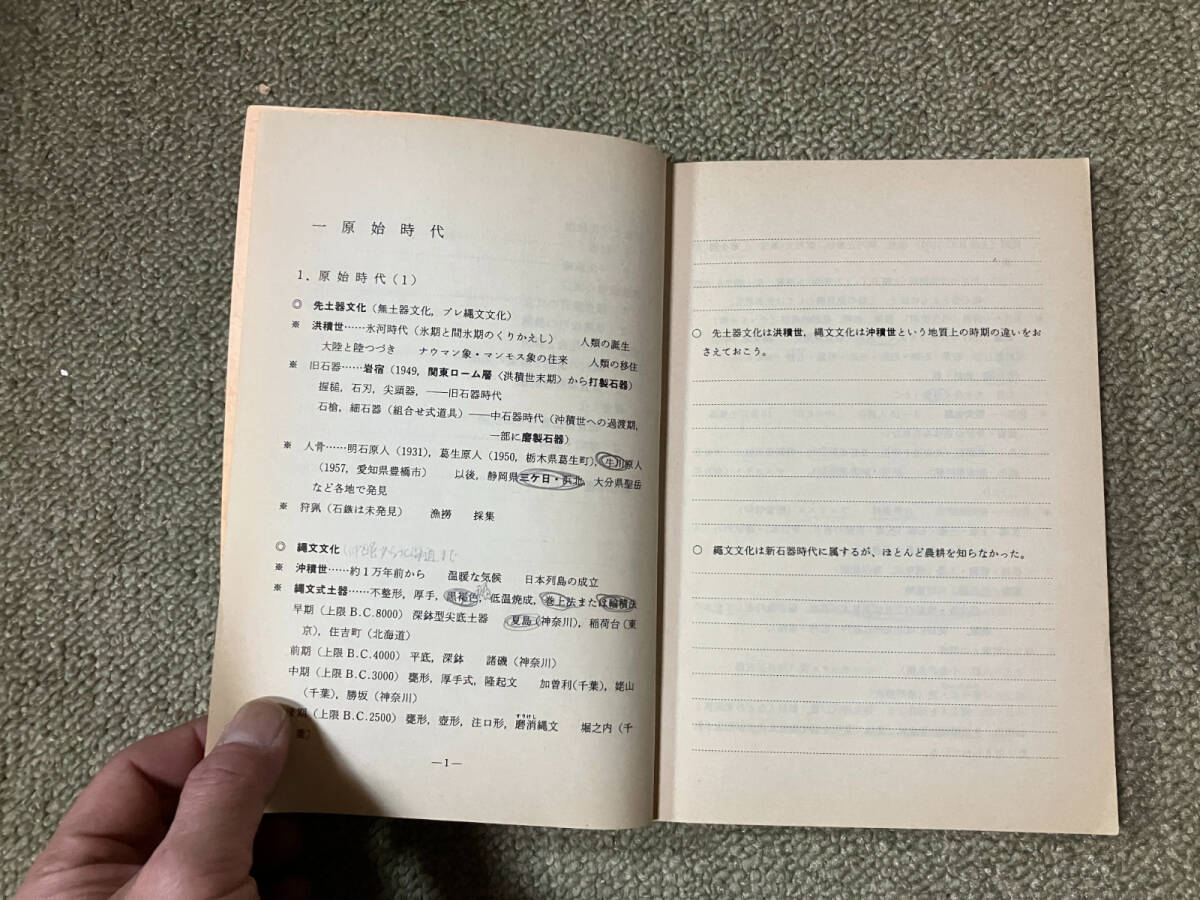 一 原 始 時 代
1. 原 始 時 代 (1)
◎ 先土器文化（無土器文化，プレ縄文文化）
※ 洪積世……氷河時代（氷期と間氷期のくりかえし） 人類の誕生
大陸と陸つづき ナウマン象・マンモス象の往来 人類の移住
※ 旧石器……岩宿（1949, 関東ローム層〈洪積世末期〉から打製石器）
握槌，石刃，尖頭器，——旧石器時代
石槍，細石器（組合せ式道具）——中石器時代（沖積世への過渡期，
一部に磨製石器）
※ 人骨……明石原人（1931），葛生原人（1950, 栃木県葛生町），牛川原人
（1957, 愛知県豊橋市） 以後，静岡県三ケ日・浜北，大分県聖岳
など各地で発見
※ 狩猟（石鏃は未発見） 漁撈 採集
◎ 縄文文化
※ 沖積世……約1万年前から 温暖な気候 日本列島の成立
※ 縄文式土器……不整形，厚手，黒褐色，低温焼成，巻上法または輪積法
早期（上限 B.C.8000）深鉢型尖底土器 夏島（神奈川），稲荷台（東
京），住吉町（北海道）
前期（上限 B.C.4000）平底，深鉢 諸磯（神奈川）
中期（上限 B.C.3000）甕形，厚手式，隆起文 加曽利（千葉），姥山
（千葉），勝坂（神奈川）
期（上限 B.C.2500）甕形，壺形，注口形，磨消縄文 堀之内（千
葉）
—1—
○ 先土器文化は洪積世，縄文文化は沖積世という地質上の時期の違いをお
さえておこう。
○ 縄文文化は新石器時代に属するが，ほとんど農耕を知らなかった。